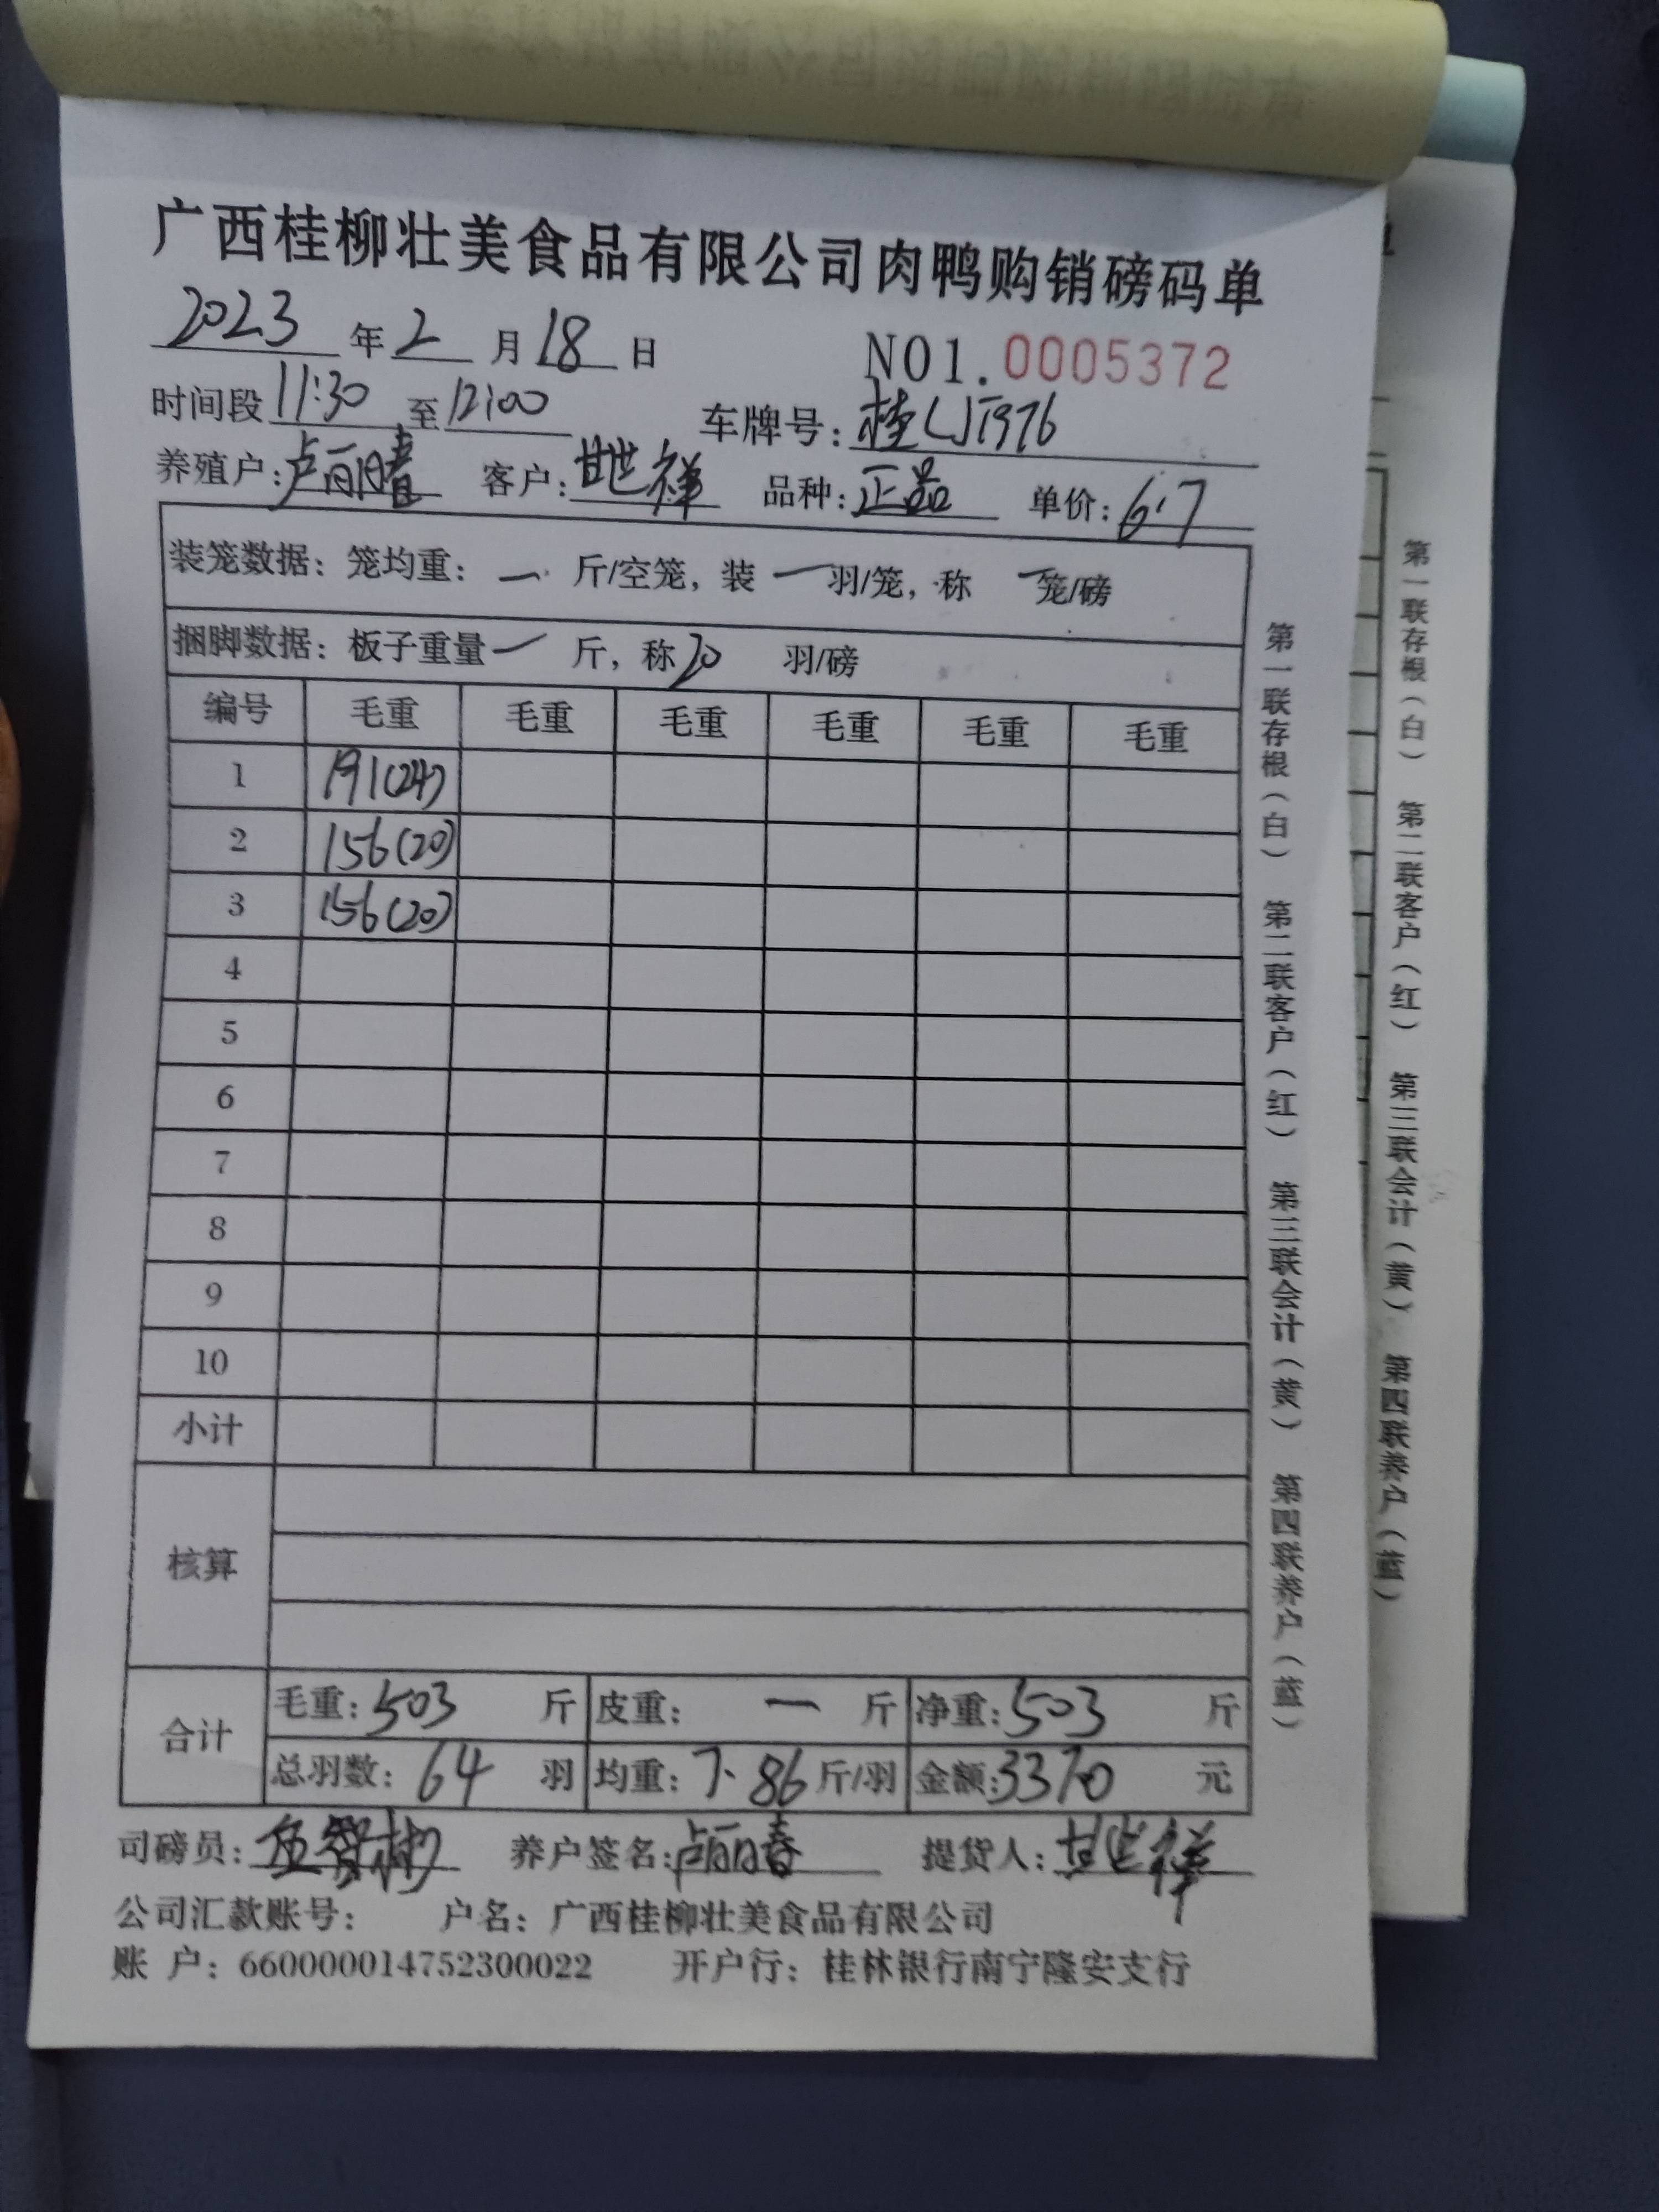 广西桂柳壮美食品有限公司肉鸭购销磅码单
2023年2月18日 NO1.0005372
时间段11:30至12:00 车牌号:桂
养殖户:卢丽春 客户:甘世祥 品种:正品 单价:6.7
装笼数据:笼均重:一斤/空笼,装一羽/笼,称一笼/磅
捆脚数据:板子重量一斤,称20羽/磅
编号 毛重 毛重 毛重 毛重 毛重 毛重
1 191(24)
2 156(20)
3 156(20)
4
5
6
7
8
9
10
小计
核算
合计 毛重:503斤 皮重:一斤 净重:503斤
总羽数:64羽 均重:7.86斤/羽 金额:3370元
司磅员: 养户签名:卢丽春 提货人:甘世祥
公司汇款账号: 户名:广西桂柳壮美食品有限公司
账 户:660000014752300022 开户行:桂林银行南宁隆安支行
第一联存根(白) 第二联客户(红) 第三联会计(黄) 第四联养户(蓝)
单
第一联存根(白) 第二联客户(红) 第三联会计(黄) 第四联养户(蓝)